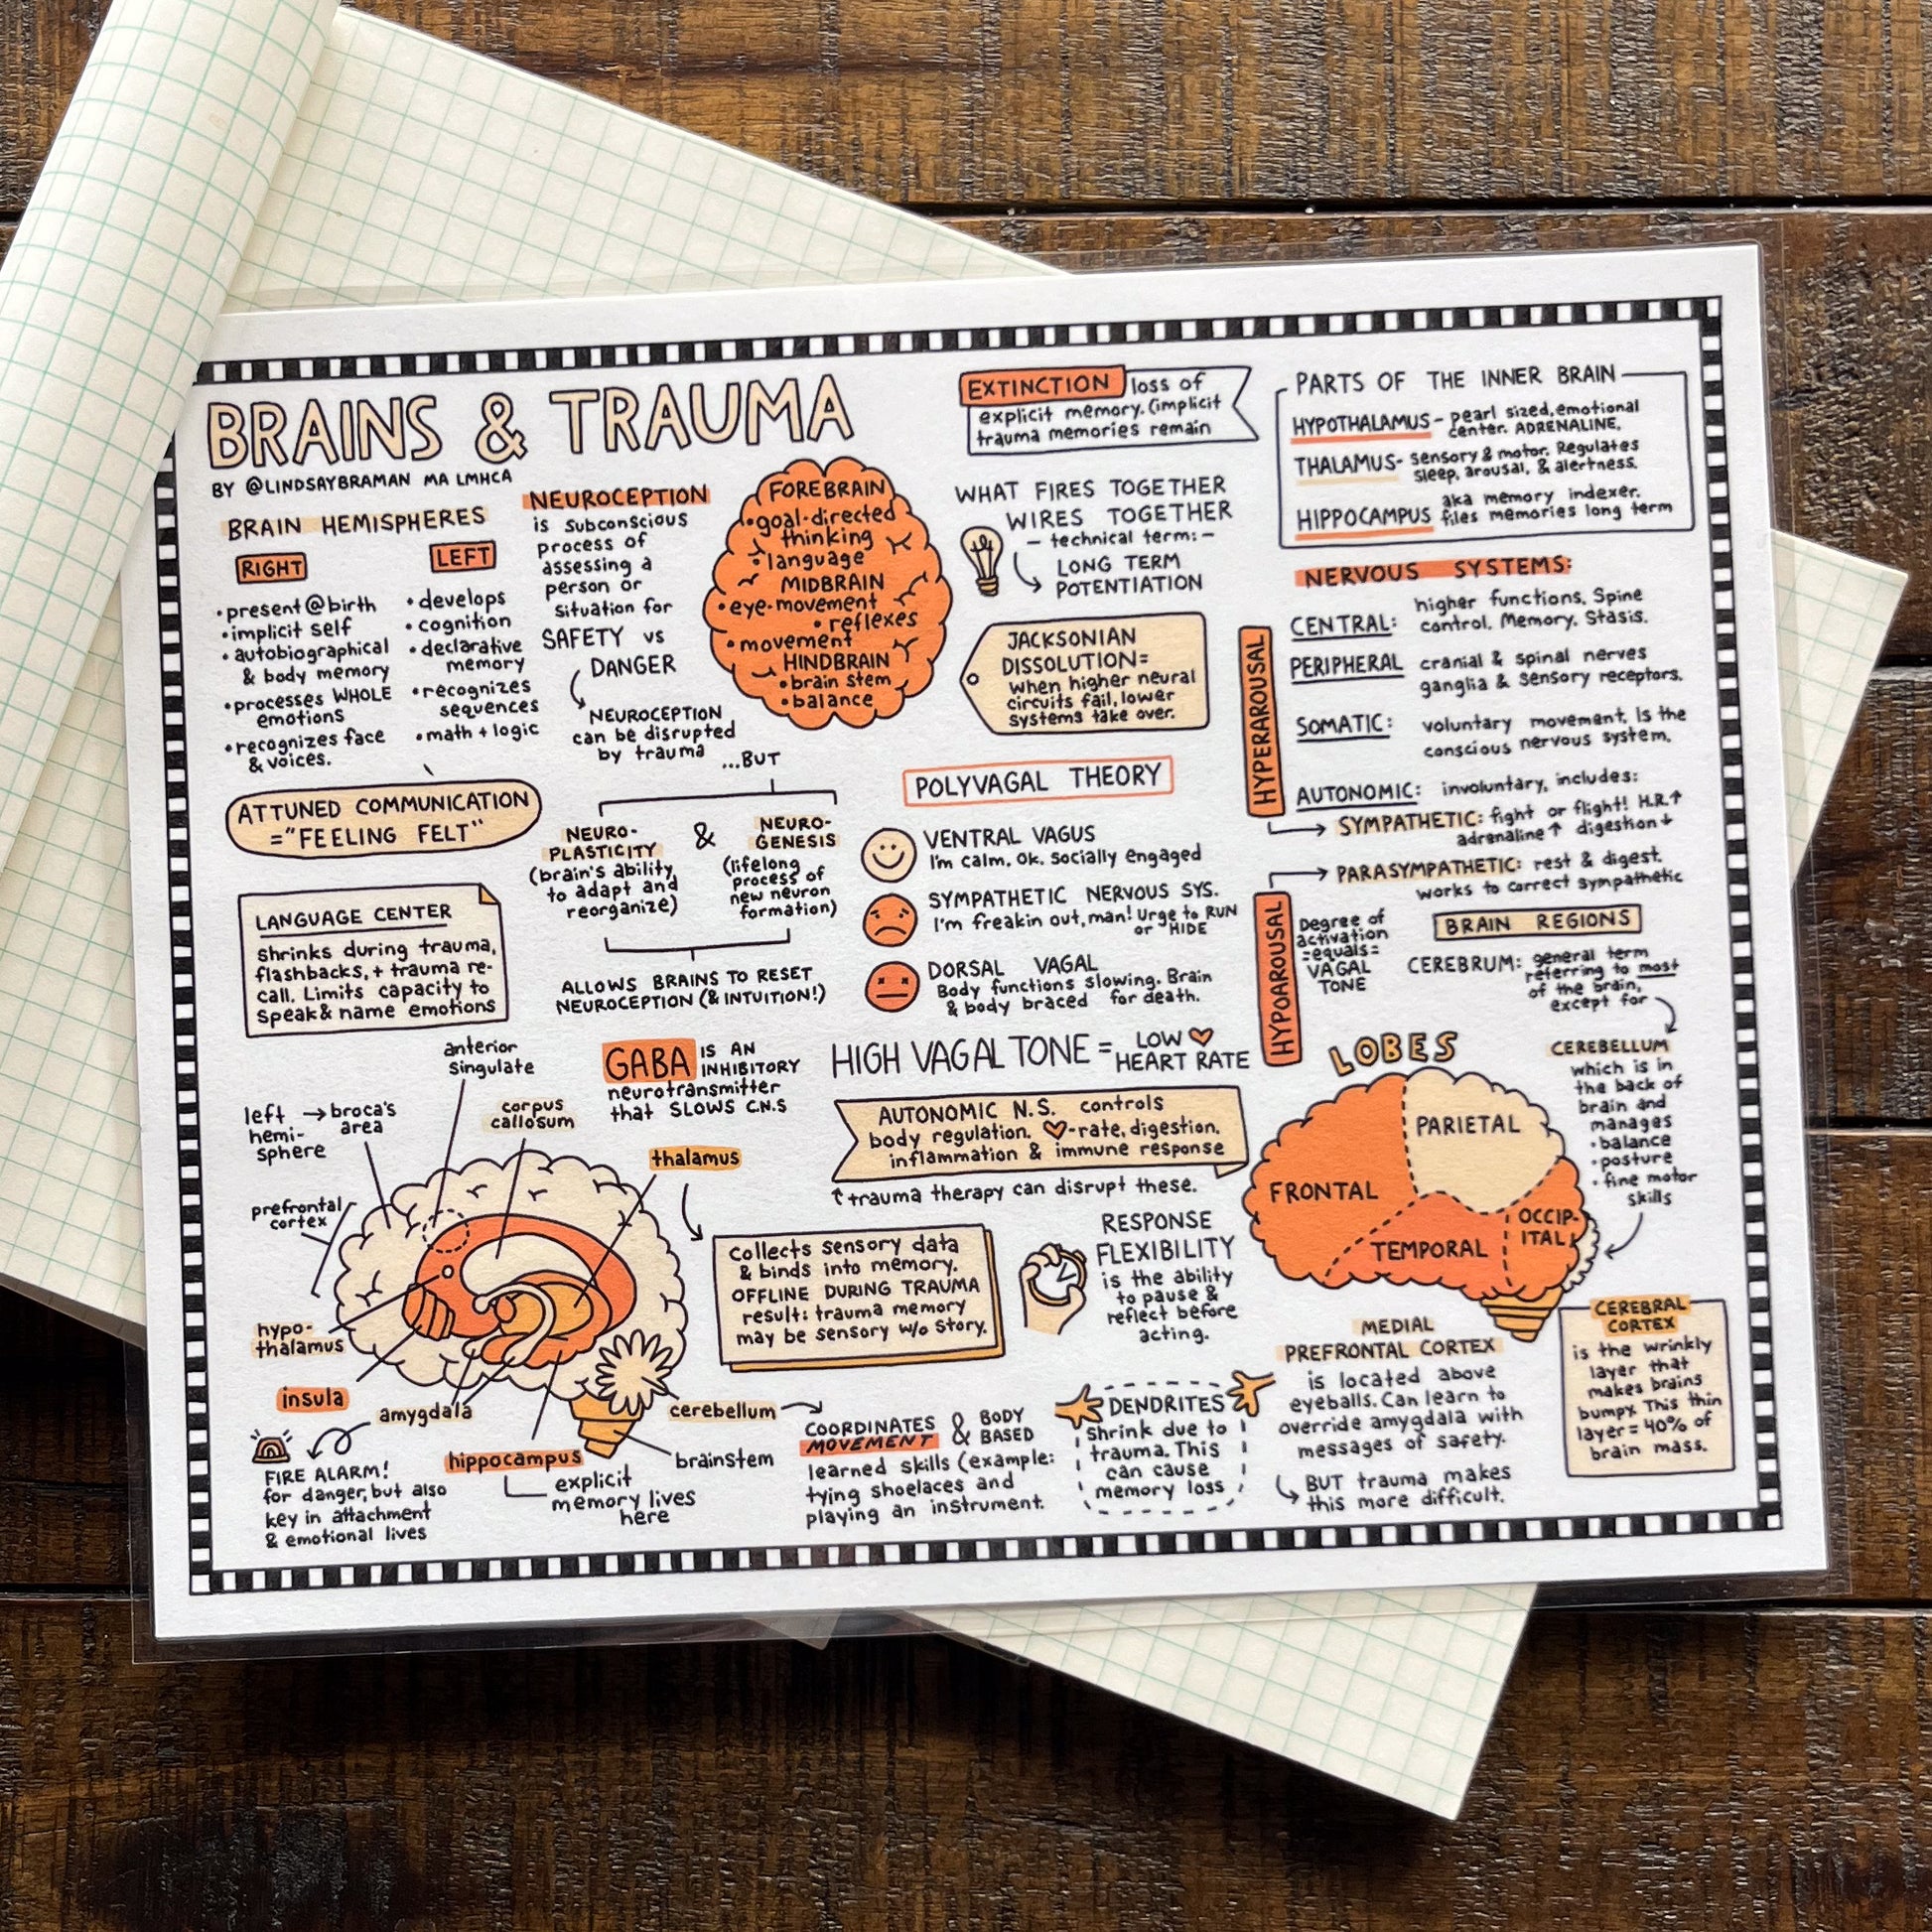 BRAINS & TRAUMA
BY @LINDSAYBRAMAN MA LMHCA
BRAIN HEMISPHERES
RIGHT
•present@birth
•implicit self
•autobiographical
& body memory
•processes WHOLE
emotions
•recognizes face
& voices.
LEFT
•develops
•cognition
•declarative
memory
•recognizes
sequences
•math + logic
ATTUNED COMMUNICATION
="FEELING FELT"
LANGUAGE CENTER
Shrinks during trauma,
flashbacks, + trauma re-
call. Limits capacity to
speak & name emotions
NEUROCEPTION
is subconscious
process of
assessing a
person or
situation for
SAFETY vs
DANGER
NEUROCEPTION
can be disrupted
by trauma
...BUT
NEURO-
PLASTICITY
(brain's ability
to adapt and
reorganize)
&
NEURO-
GENESIS
(lifelong
process of
new neuron
formation)
ALLOWS BRAINS TO RESET
NEUROCEPTION (& INTUITION!)
FOREBRAIN
•goal-directed
thinking
•language
MIDBRAIN
•eye-movement
•reflexes
•movement
HINDBRAIN
•brain stem
•balance
EXTINCTION loss of
explicit memory. (implicit
trauma memories remain
WHAT FIRES TOGETHER
WIRES TOGETHER
- technical term: -
LONG TERM
POTENTIATION
JACKSONIAN
DISSOLUTION=
when higher neural
circuits fail, lower
systems take over.
POLYVAGAL THEORY
VENTRAL VAGUS
I'm calm. Ok. Socially engaged
SYMPATHETIC NERVOUS SYS.
I'm freakin out, man! Urge to RUN
or HIDE
DORSAL VAGAL
Body functions slowing. Brain
& body braced for death.
HYPERAROUSAL
HYPOAROUSAL
HIGH VAGAL TONE = LOW ♥
HEART RATE
PARTS OF THE INNER BRAIN
HYPOTHALAMUS- pearl sized, emotional
center. ADRENALINE.
THALAMUS- sensory & motor. Regulates
sleep, arousal, & alertness.
HIPPOCAMPUS aka memory indexer.
files memories long term
NERVOUS SYSTEMS:
CENTRAL: higher functions. Spine
control. Memory. Stasis.
PERIPHERAL cranial & spinal nerves
ganglia & sensory receptors.
SOMATIC: voluntary movement. Is the
conscious nervous system.
AUTONOMIC: involuntary, includes:
SYMPATHETIC: fight or flight! H.R.↑
adrenaline↑ digestion↓
PARASYMPATHETIC: rest & digest.
works to correct sympathetic
Degree of
activation
=equals=
VAGAL
TONE
BRAIN REGIONS
CEREBRUM: general term
referring to most
of the brain,
except for
CEREBELLUM
which is in
the back of
brain and
manages
•balance
•posture
•fine motor
skills
LOBES
FRONTAL
PARIETAL
TEMPORAL
OCCIP-
ITAL
GABA IS AN
INHIBITORY
neurotransmitter
that SLOWS C.N.S
AUTONOMIC N.S. controls
body regulation. ♥-rate, digestion,
inflammation & immune response
↑trauma therapy can disrupt these.
anterior
singulate
left → broca's
hemi- area
sphere
corpus
callosum
thalamus
prefrontal
cortex
hypo-
thalamus
insula
amygdala
hippocampus
explicit
memory lives
here
cerebellum
brainstem
FIRE ALARM!
for danger, but also
key in attachment
& emotional lives
Collects sensory data
& binds into memory.
OFFLINE DURING TRAUMA
result: trauma memory
may be sensory w/o story.
RESPONSE
FLEXIBILITY
is the ability
to pause &
reflect before
acting.
COORDINATES
MOVEMENT & BODY
BASED
learned skills (example:
tying shoelaces and
playing an instrument.
DENDRITES
Shrink due to
trauma. This
can cause
memory loss
MEDIAL
PREFRONTAL CORTEX
is located above
eyeballs. Can learn to
override amygdala with
messages of safety.
BUT trauma makes
this more difficult.
CEREBRAL
CORTEX
is the wrinkly
layer that
makes brains
bumpy. This thin
layer = 40% of
brain mass.